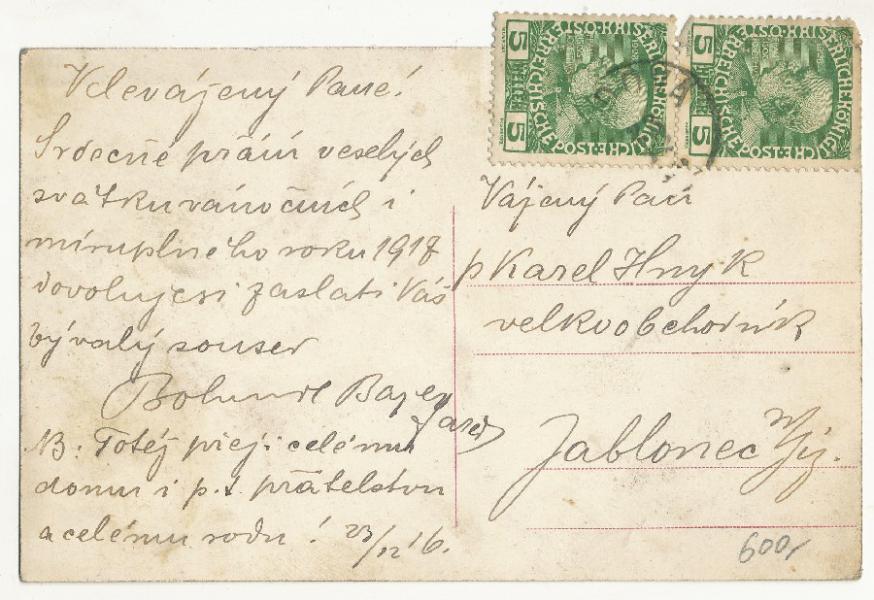 Velevážený Pane!
Srdečné přání veselých
svátků vánočních i
míruplného roku 1917
dovoluje si zaslati Váš
bývalý soused
Bohumil Bayer
NB: Totéž přeji celému
domu i p. t. přátelstvu
a celému rodu! 23/12 16.
KAISERLICH KÖNIGL
ÖSTERREICHISCHE POST
5
5
KAISERLICH KÖNIGL
ÖSTERREICHISCHE POST
5
5
Vážený Pan
p Karel Hnyk
velkoobchodník
Jablonec n/Jiz.
600,